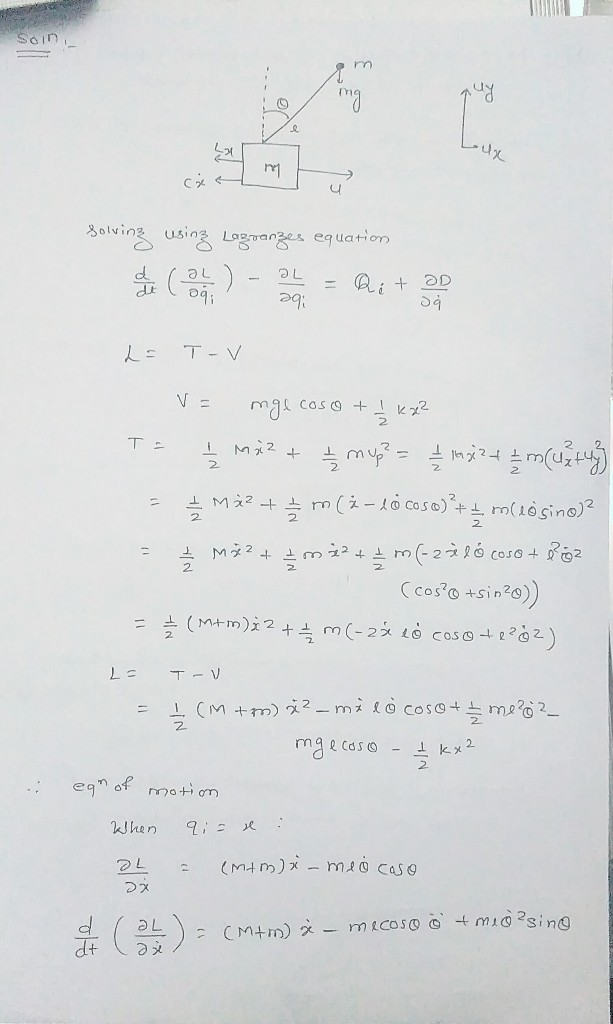 Soln :-
m
mg
θ
l
Lx
M
cẋ
u
uy
ux
Solving using Lagranges equation
d/dt (∂L/∂q̇i) - ∂L/∂qi = Qi + ∂D/∂q̇
L = T - V
V = mgl cosθ + 1/2 kx²
T = 1/2 Mẋ² + 1/2 mvp² = 1/2 Mẋ² + 1/2 m(ux² + uy²)
= 1/2 Mẋ² + 1/2 m(ẋ - lθ̇ cosθ)² + 1/2 m(lθ̇ sinθ)²
= 1/2 Mẋ² + 1/2 mẋ² + 1/2 m(-2ẋlθ̇ cosθ + l²θ̇²
(cos²θ + sin²θ))
= 1/2 (M+m)ẋ² + 1/2 m(-2ẋ lθ̇ cosθ + l²θ̇²)
L = T - V
= 1/2 (M+m) ẋ² - mẋ lθ̇ cosθ + 1/2 ml²θ̇² -
mgl cosθ - 1/2 kx²
∴ eqn of motion
When qi = x :
∂L/∂ẋ = (M+m)ẋ - mlθ̇ cosθ
d/dt (∂L/∂ẋ) = (M+m) ẋ - mlcosθ θ̈ + mlθ̇² sinθ